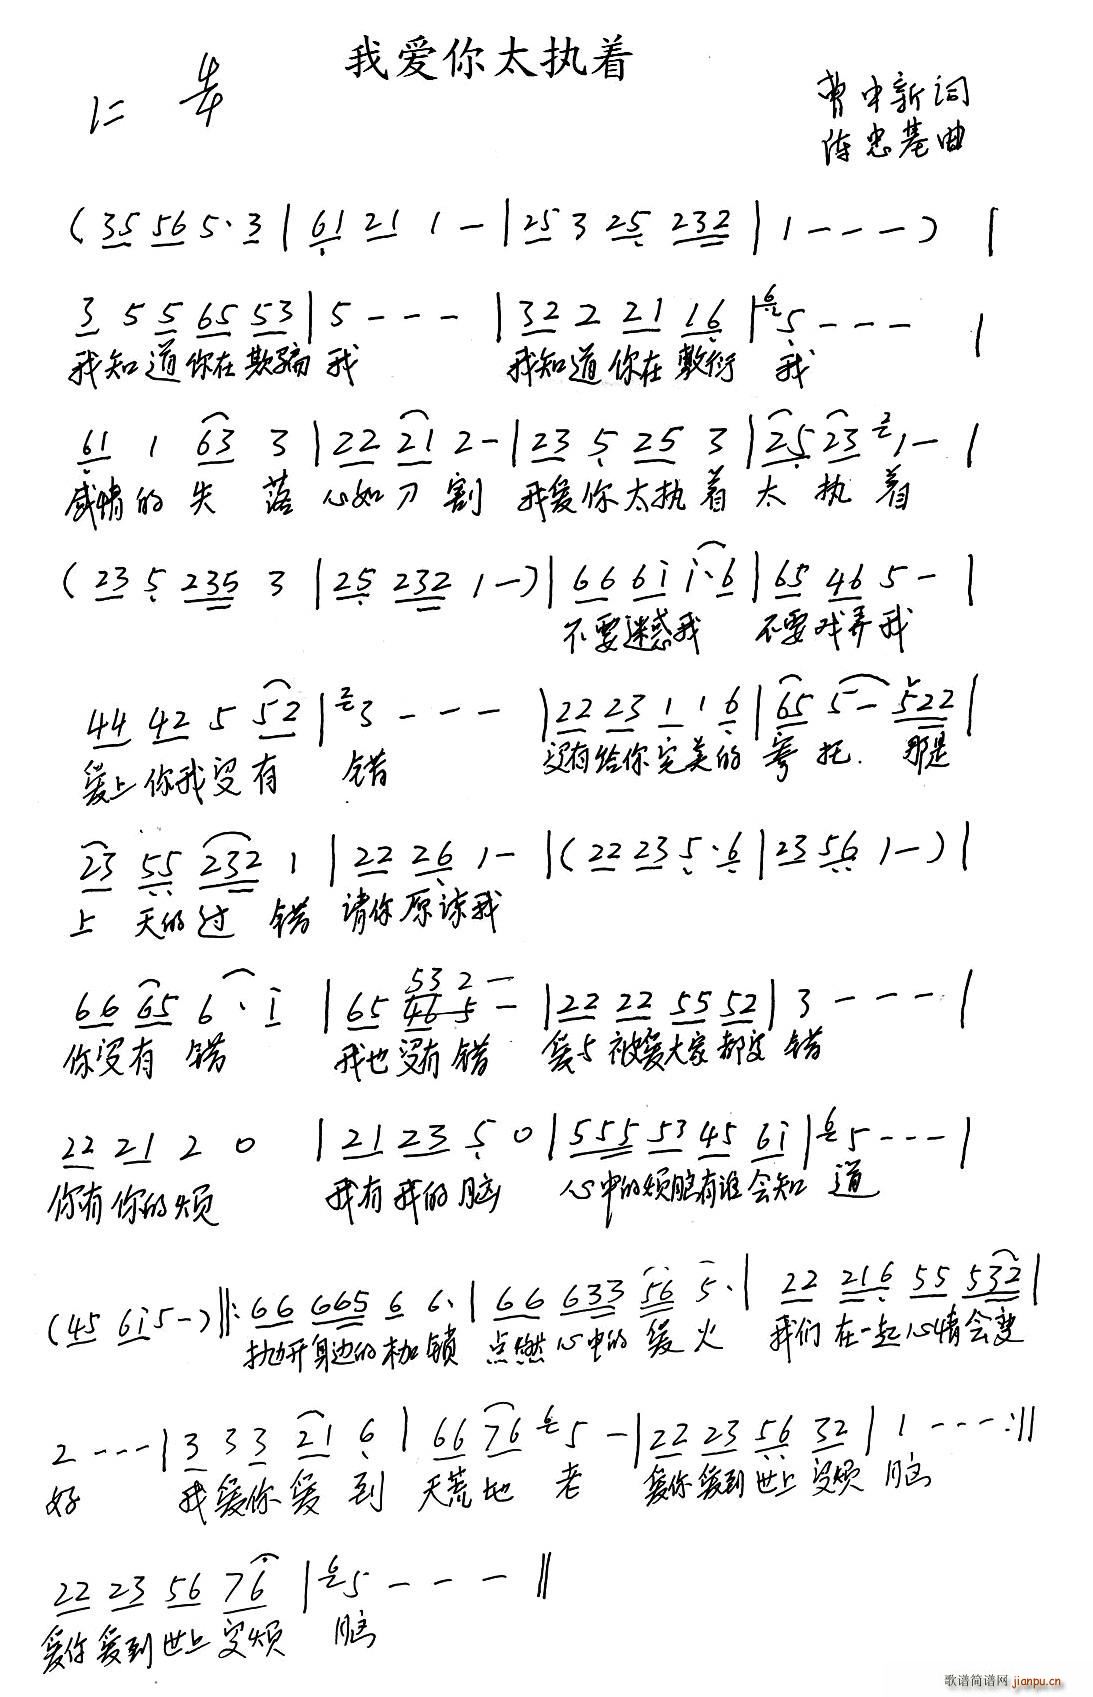 我爱你太执着
1=
曹中新词
陈忠基曲
( 35 56 5· 3 | 61 21 1 - | 25 3 25 232 | 1 - - - ) |
3 5 5 65 53 | 5 - - - | 32 2 21 16 | 6 5 - - - |
我知道你在欺骗我 我知道你在敷衍 我
61 1 63 3 | 22 21 2 - | 23 5 25 3 | 25 23 2 1 - |
感情的 失 落 心如刀 割 我爱你太执着 太 执 着
( 23 5 235 3 | 25 232 1 - ) | 66 6i i· 6 | 65 46 5 - |
不要迷惑我 不要戏弄我
44 42 5 52 | 2 3 - - - | 22 23 1 1 6 | 65 5 - 522 |
爱上你我没有 错 没有给你完美的 寄 托. 那是
23 55 232 1 | 22 26 1 - | ( 22 23 5· 6 | 23 56 1 - ) |
上 天的过 错 请你原谅我
53 2 -
66 65 6 · i | 65 46 5 - | 22 22 55 52 | 3 - - - |
你没有 错 我也没有错 爱与被爱大家都没 错
22 21 2 0 | 21 23 5 0 | 555 53 45 6i | 6 5 - - - |
你有你的烦 我有我的脑 心中的烦脑有谁会知 道
( 45 6i 5 - ) ‖: 66 665 6 6· | 66 633 56 5· | 22 216 55 532 |
抛开身边的枷锁 点燃心中的 爱 火 我们在一起心情会变
2 - - - | 3 3 3 21 6 | 66 76 6 5 - | 22 23 56 32 | 1 - - - :‖
好 我爱你爱 到 天荒地 老 爱你爱到世上没烦 脑
22 23 56 76 | 6 5 - - - ‖
爱你爱到世上没烦 脑
歌谱简谱网 jianpu.cn